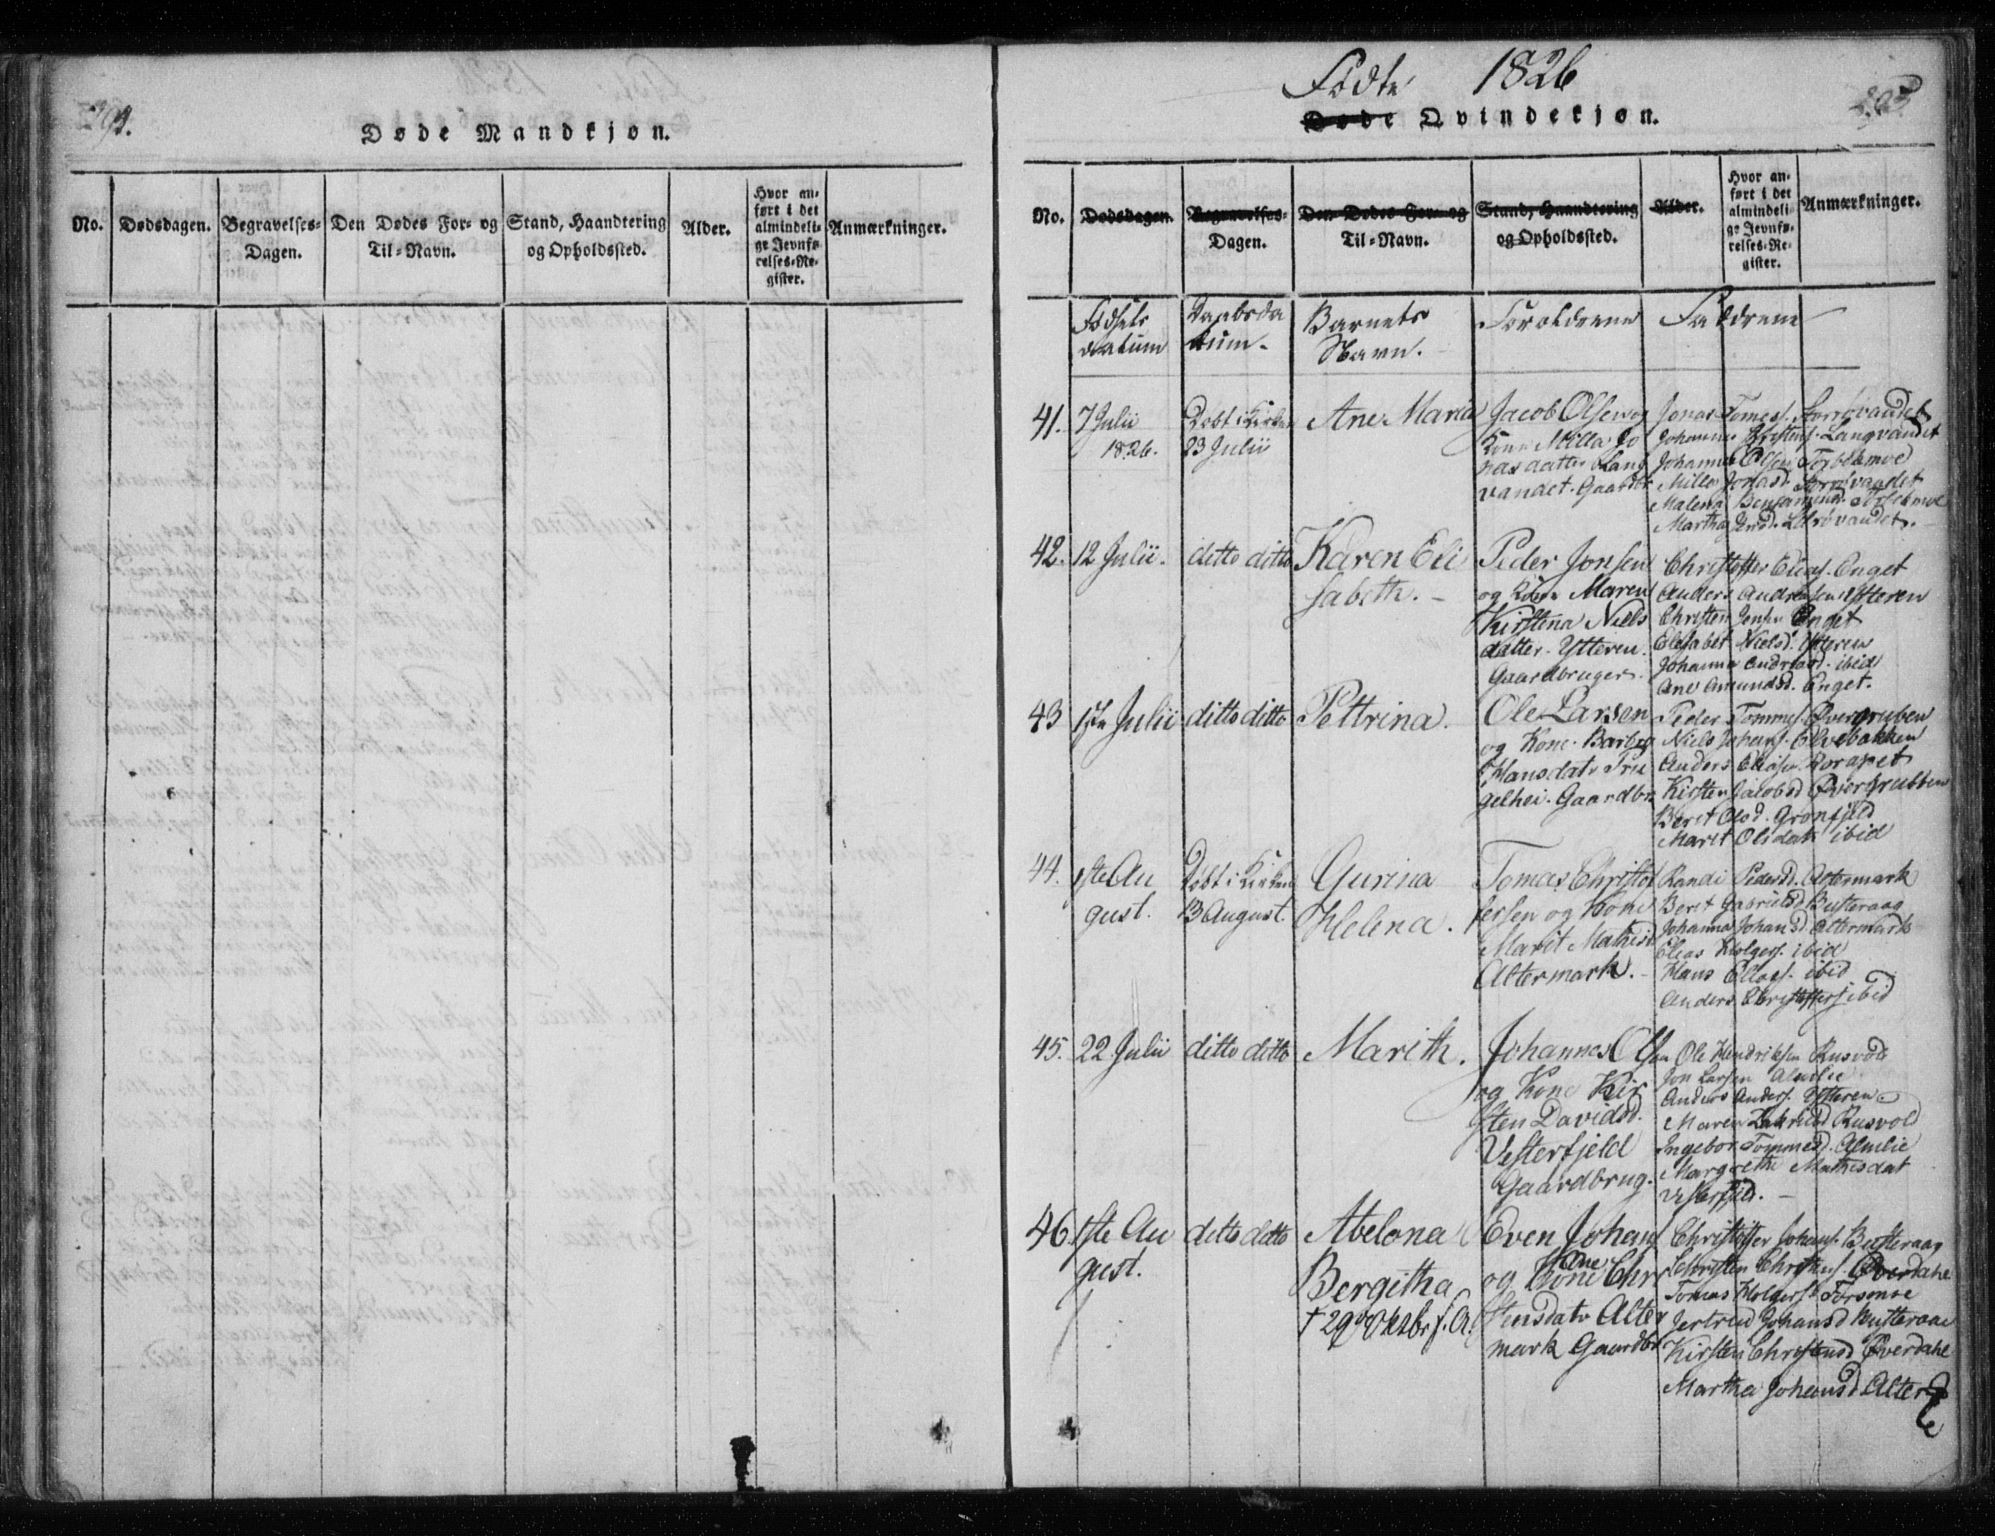 294.
Døde Mandkjøn.
No.
Dødsdagen.
Begravelses-
Dagen.
Den Dødes For- og
Til-Navn.
Stand, Haandtering
og Opholdssted.
Alder.
Hvor an-
ført i det
almindeli-
ge Jevnfø-
relses-Re-
gister.
Anmærkninger.
Fødte 1826
295
Døde Qvindekjøn.
No.
Dødsdagen.
Begravelses-
Dagen.
Den Dødes For- og
Til-Navn.
Stand, Haandtering
og Opholdssted.
Alder.
Hvor an-
ført i det
almindeli-
ge Jevnfø-
relses-Re-
gister.
Anmærkninger.
Fødsels
datum
Daabsda
tum.
Barnets
Navn.
Foreldrene
Faddrene
41.
7 Julii
1826.
Døbt i Kirken
23 Julii
Ane Maria
Jacob Olsen og
Kone Milla Jo
nasdatter Lang
vandet. Gaardbr
Jonas Tomes.
Johannes Kristens. Langvandet
Johannes Olsen
Milla Jonasd.
Malena Benjamind.
Martha
42.
12 Julii.
ditto ditto
Karen Eli
sabeth. -
Peder Jonsen
og Kone Maren
Kirstina Niels
datter. Ytteren.
Gaardbruger.
Christoffer Elias. Enget
Anders Andersen Ytteren
Christen Jensen Enget
Elesabet Nielsd. Ytteren
Johanna Andreasd. ibid
Ane Amundsd. Enget.
43
15te Julii
ditto ditto
Pettrina.
Ole Larsen
og Kone. Barbro
Hansdatr
gelhei. Gaardbr.
Peder Tommes. Øvergruben
Niels Johans. Elvebakken
Anders Elias.
Kirsten Jacobsd Øvergrubben
Beret Olsd. Grønfjeld
Marit Olsdatr ibid
44.
1ste Au
gust.
Døbt i Kirken
13 August.
Gurina
Helena.
Tomas Christof
fersen og Kone
Marit Mathisd
Altermark. -
Randi Pedersd. Altermark
Beret Gabrielsd Busteraag
Johanna Johansd. Altermark
Elias Holgers. ibid
Hans Elias. ibid
Anders Christoffers. ibid
45.
22 Julii
ditto ditto
Marith.
Johannes Ols
og Kone Kir
sten Davidsd.
Vesterfjeld
Gaardbrug.
en Ole Hendriksen Rusvold
Jon Larsen Almlie
Anders Anders. Ytteren
Maren Rusvold
Ingebor Tommesd. Almlie
Margrethe Mathisdat
Vesterfjeld. -
46.
1ste Au
gust.
ditto ditto
Abelona
Bergitha
† 29 Oktbr s. A.
Even Johans
Ane
og Kone Chri
stensdatr Alter
mark Gaardbr
Christoffer Johans. Busteraag
Christen Christens. Øverdahl
Tomas Holgers. Forsmoe
Jertrud Johansd Busteraae
Kirsten Christensd Øverdahl
Martha Johansd Alter